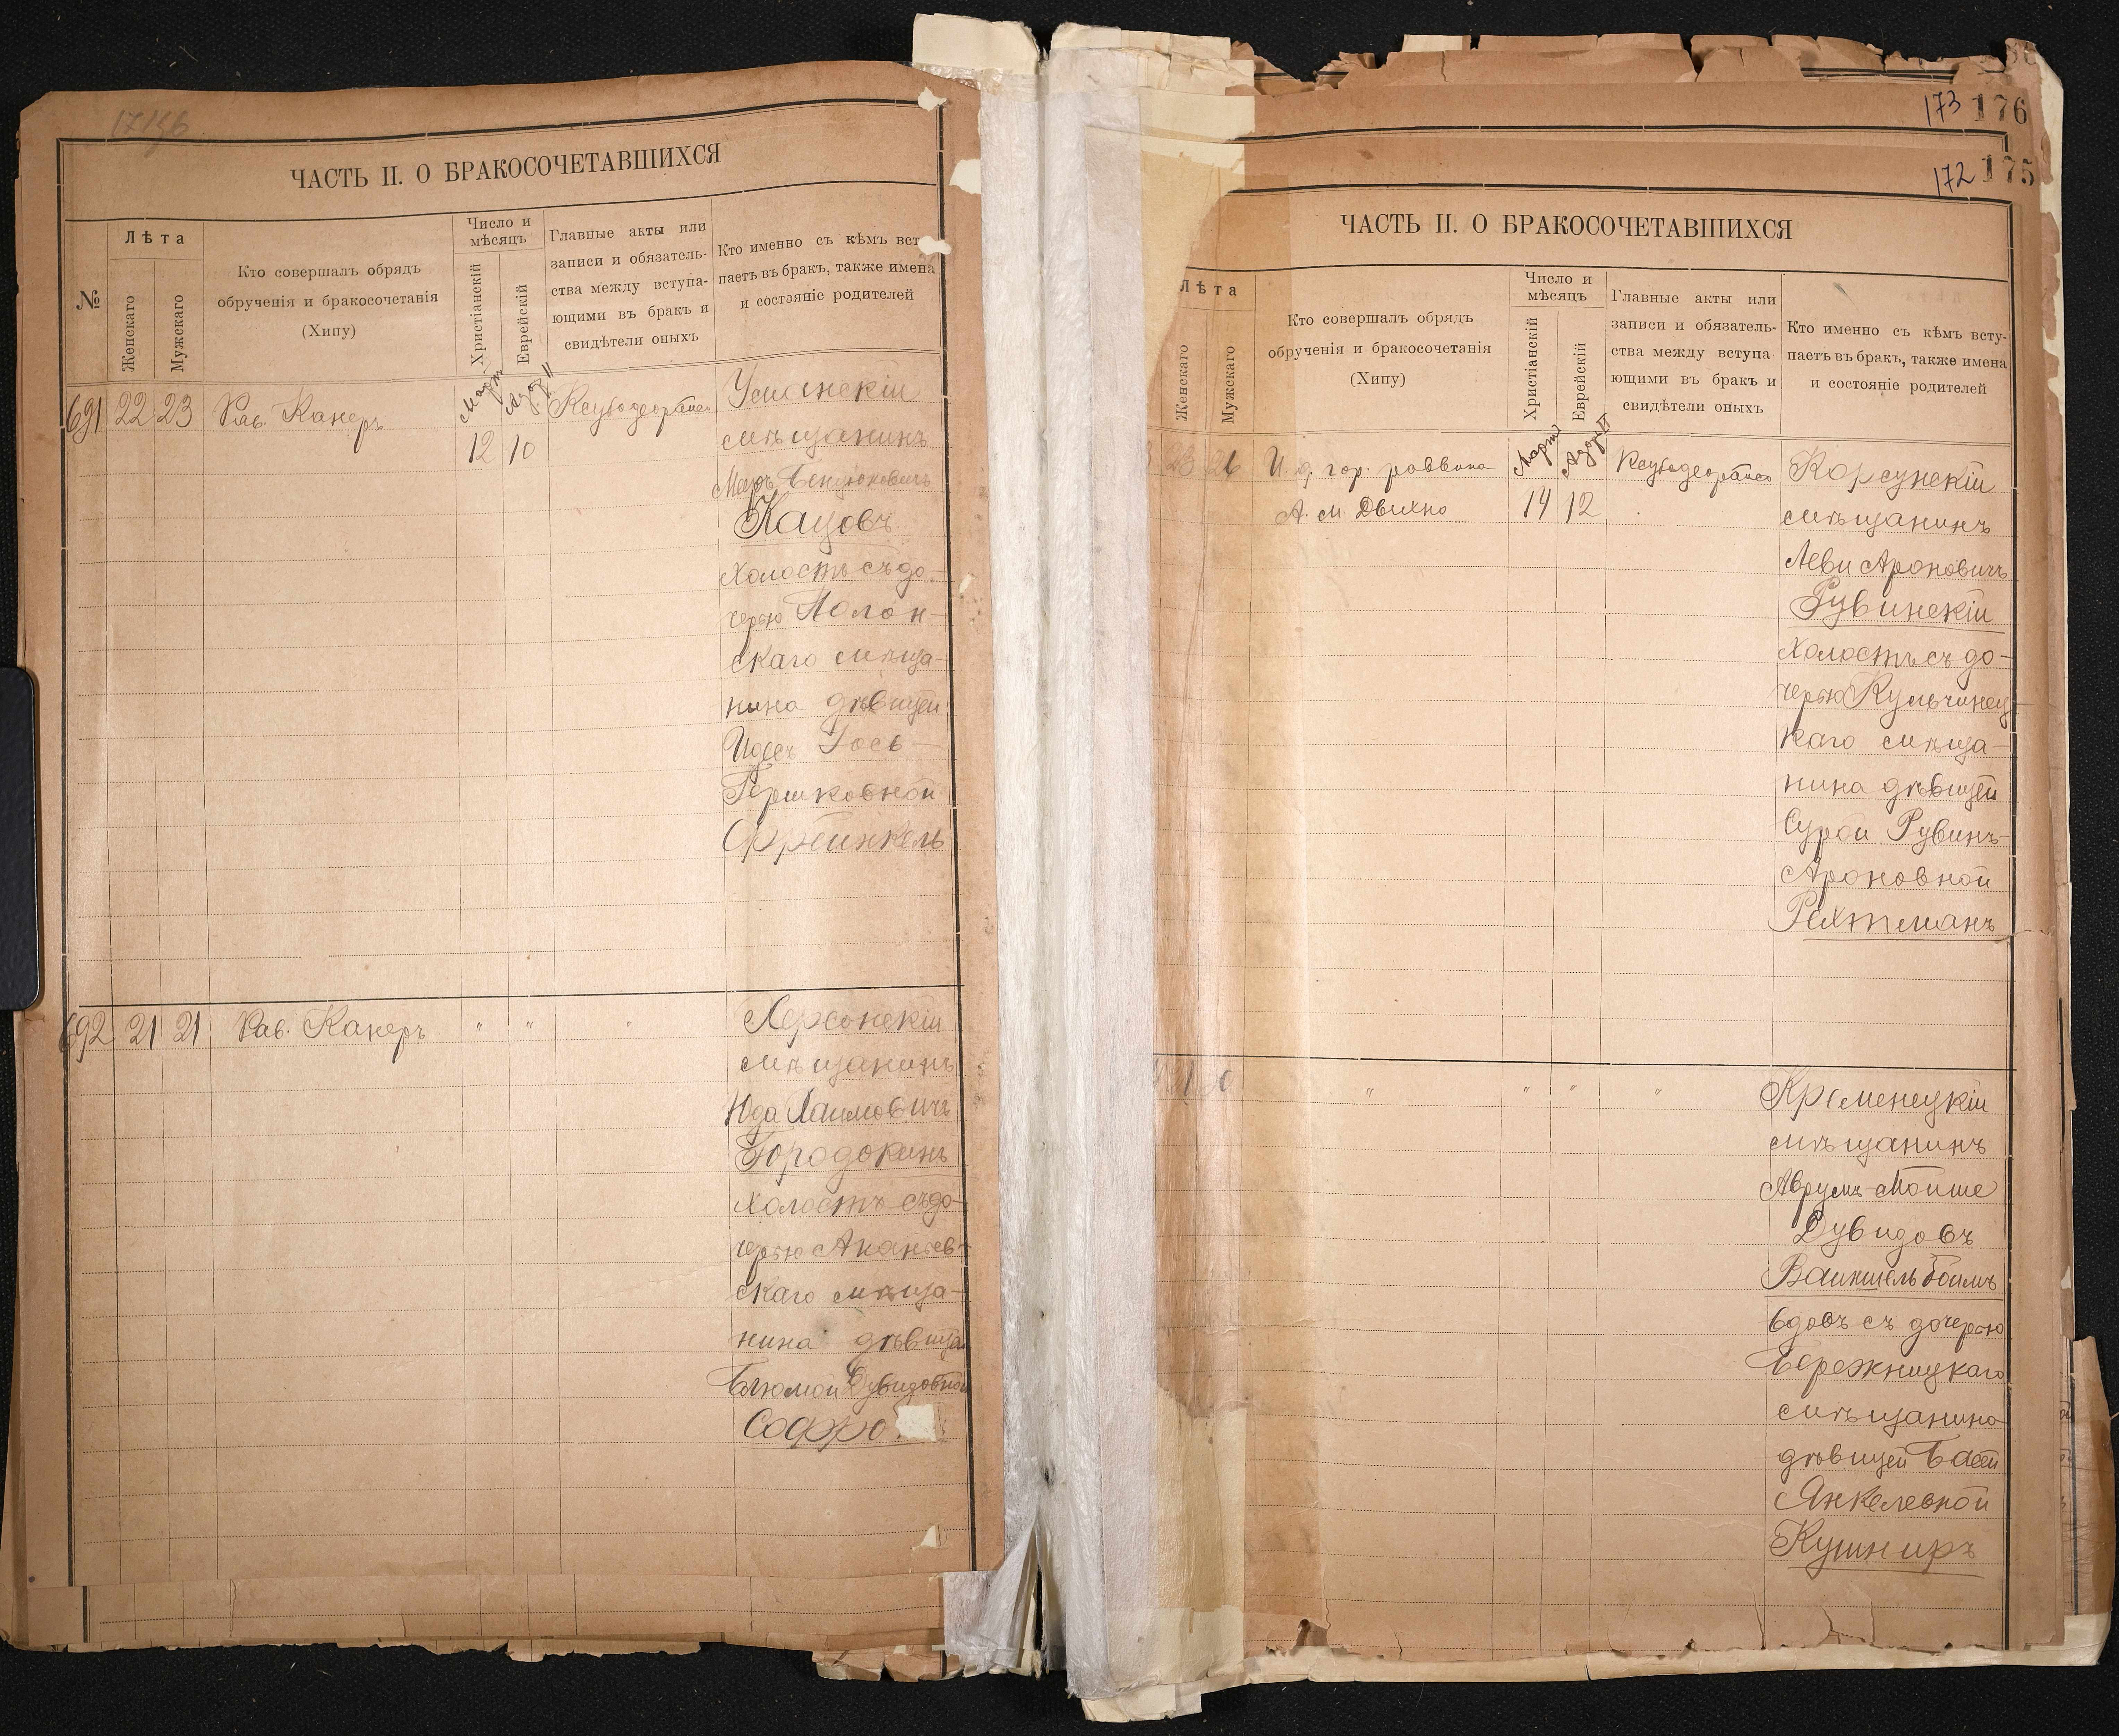 173 176
172 175
ЧАСТЬ II. О БРАКОСОЧЕТАВШИХСЯ
№
Лѣта
Женскаго
Мужскаго
Кто совершалъ обрядъ
обрученія и бракосочетанія
(Хипу)
Число и
мѣсяцъ
Христіанскій
Еврейскій
Главные акты или
записи и обязатель-
ства между вступа-
ющими въ бракъ и
свидѣтели оныхъ
Кто именно съ кѣмъ вст
паетъ въ бракъ, также имена
и состояніе родителей
691 22 23 Рав. Канеръ
Март
12
Адар II
10
Уманскій
мѣщанинъ
Кацовъ
холостъ съ до-
черью Полон-
скаго мѣща-
нина дѣвицей
Идесъ Іось-
Гершковной
Френкель
692 21 21 Рав. Канеръ " " "
Херсонскій
мѣщанинъ
Юда Хаимовичъ
Городокинъ
холостъ съ до-
черью Ананьев-
скаго мѣща-
нина дѣвицей
Блюмой Дувидовной
Софро
ЧАСТЬ II. О БРАКОСОЧЕТАВШИХСЯ
Лѣта
Женскаго
Мужскаго
Кто совершалъ обрядъ
обрученія и бракосочетанія
(Хипу)
Число и
мѣсяцъ
Христіанскій
Еврейскій
Главные акты или
записи и обязатель-
ства между вступа-
ющими въ бракъ и
свидѣтели оныхъ
Кто именно съ кѣмъ всту-
паетъ въ бракъ, также имена
и состояніе родителей
23 26 И. д. гор. раввина
А. М. Двихно
Март
14
Адар II
12
Корсунскій
мѣщанинъ
Леви Ароновичъ
Рувинскій
холостъ съ до-
черью Кульчинец
каго мѣща-
нина дѣвицей
Сурой Рувинъ-
Ароновной
Рехтманъ
" " " "
Кременецкій
мѣщанинъ
Аврумъ-Мойше
Дувидовъ
Вайншельбоймъ
вдовъ съ дочерью
Бережницкаго
мѣщанина
дѣвицей Басей
Янкелевной
Кушниръ